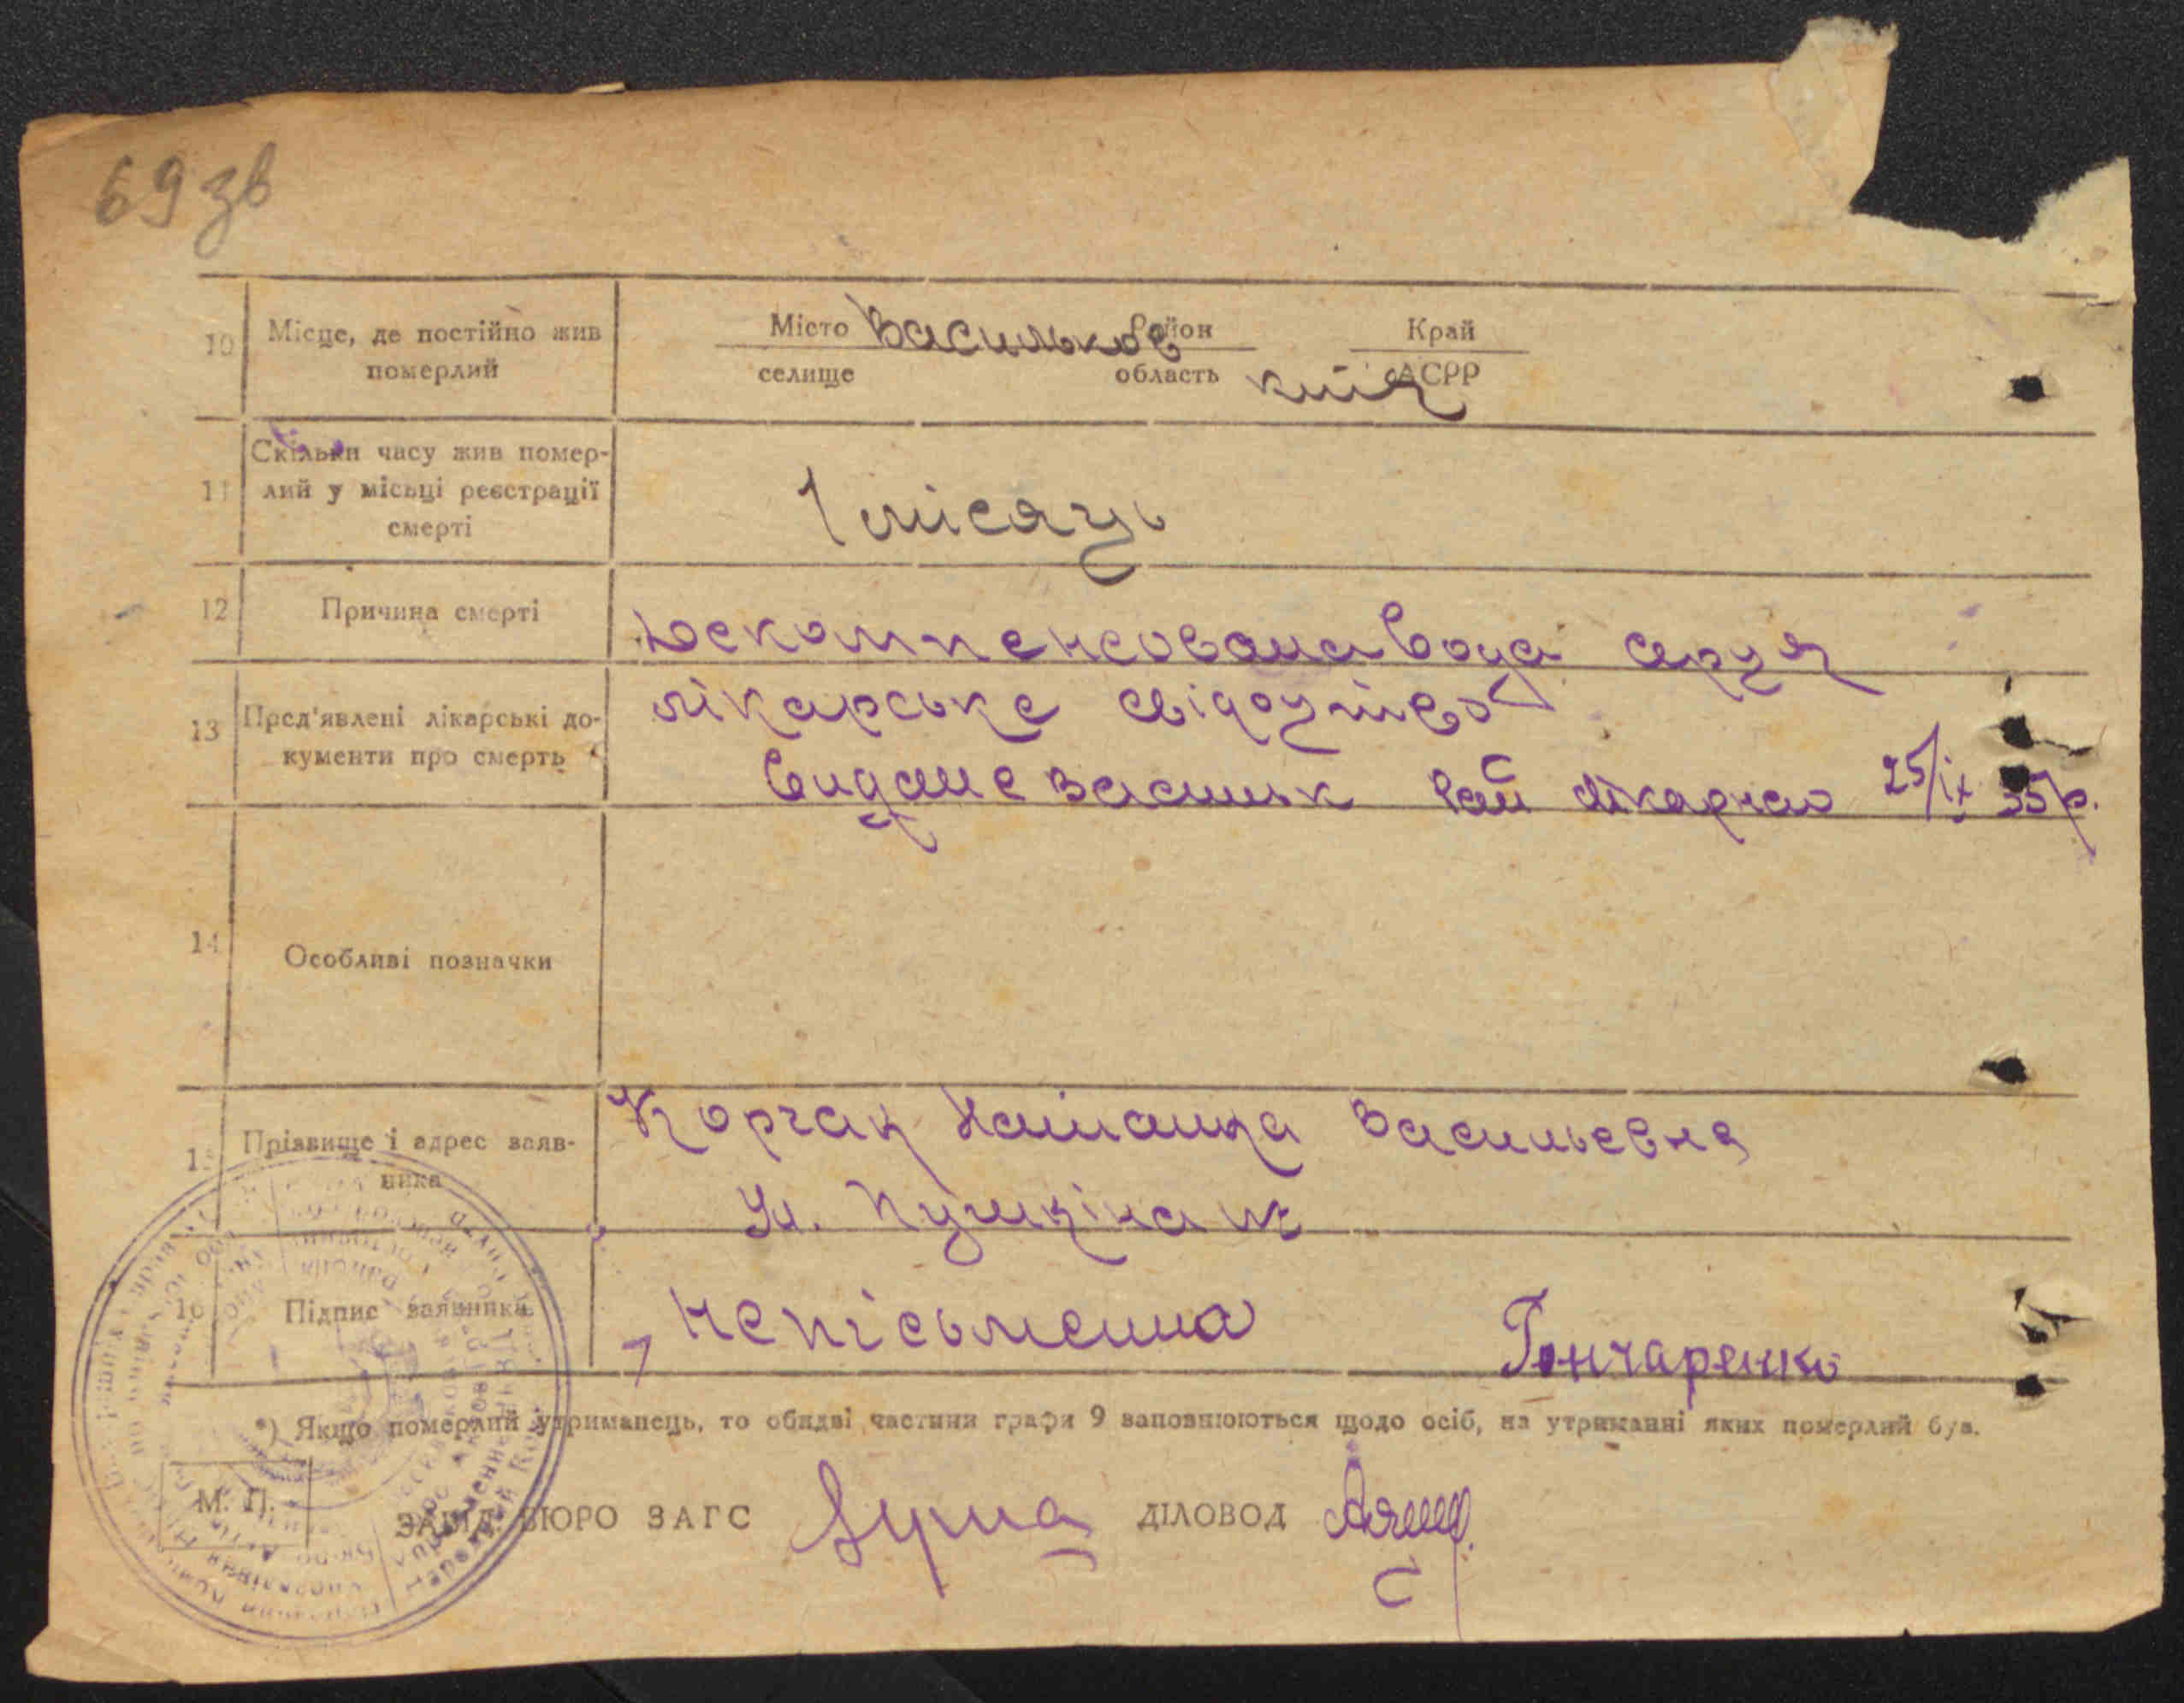 69 зв
10 Місце, де постійно жив померлий
Місто Васильков Район Край
селище область Київ АСРР
11 Скільки часу жив помер-
лий у місьці реєстрації
смерті
1 місяць
12 Причина смерті
Декомпенсована вода серця
13 Пред'явлені лікарські до-
кументи про смерть
лікарське свідоцтво
видане Васильк рай лікарнею 25/ix 35р.
14 Особливі позначки
15 Прізвище і адрес заяв-
ника
Корчак Наталка Васильевна
Ул. Пушкіна
16 Підпис заявника
непісьменна Гончаренко
*) Якщо померлий утриманець, то обидві частини графи 9 заповнюються щодо осіб, на утриманні яких померлий був.
М. П.
ЗАВІД. БЮРО ЗАГС ДІЛОВОД